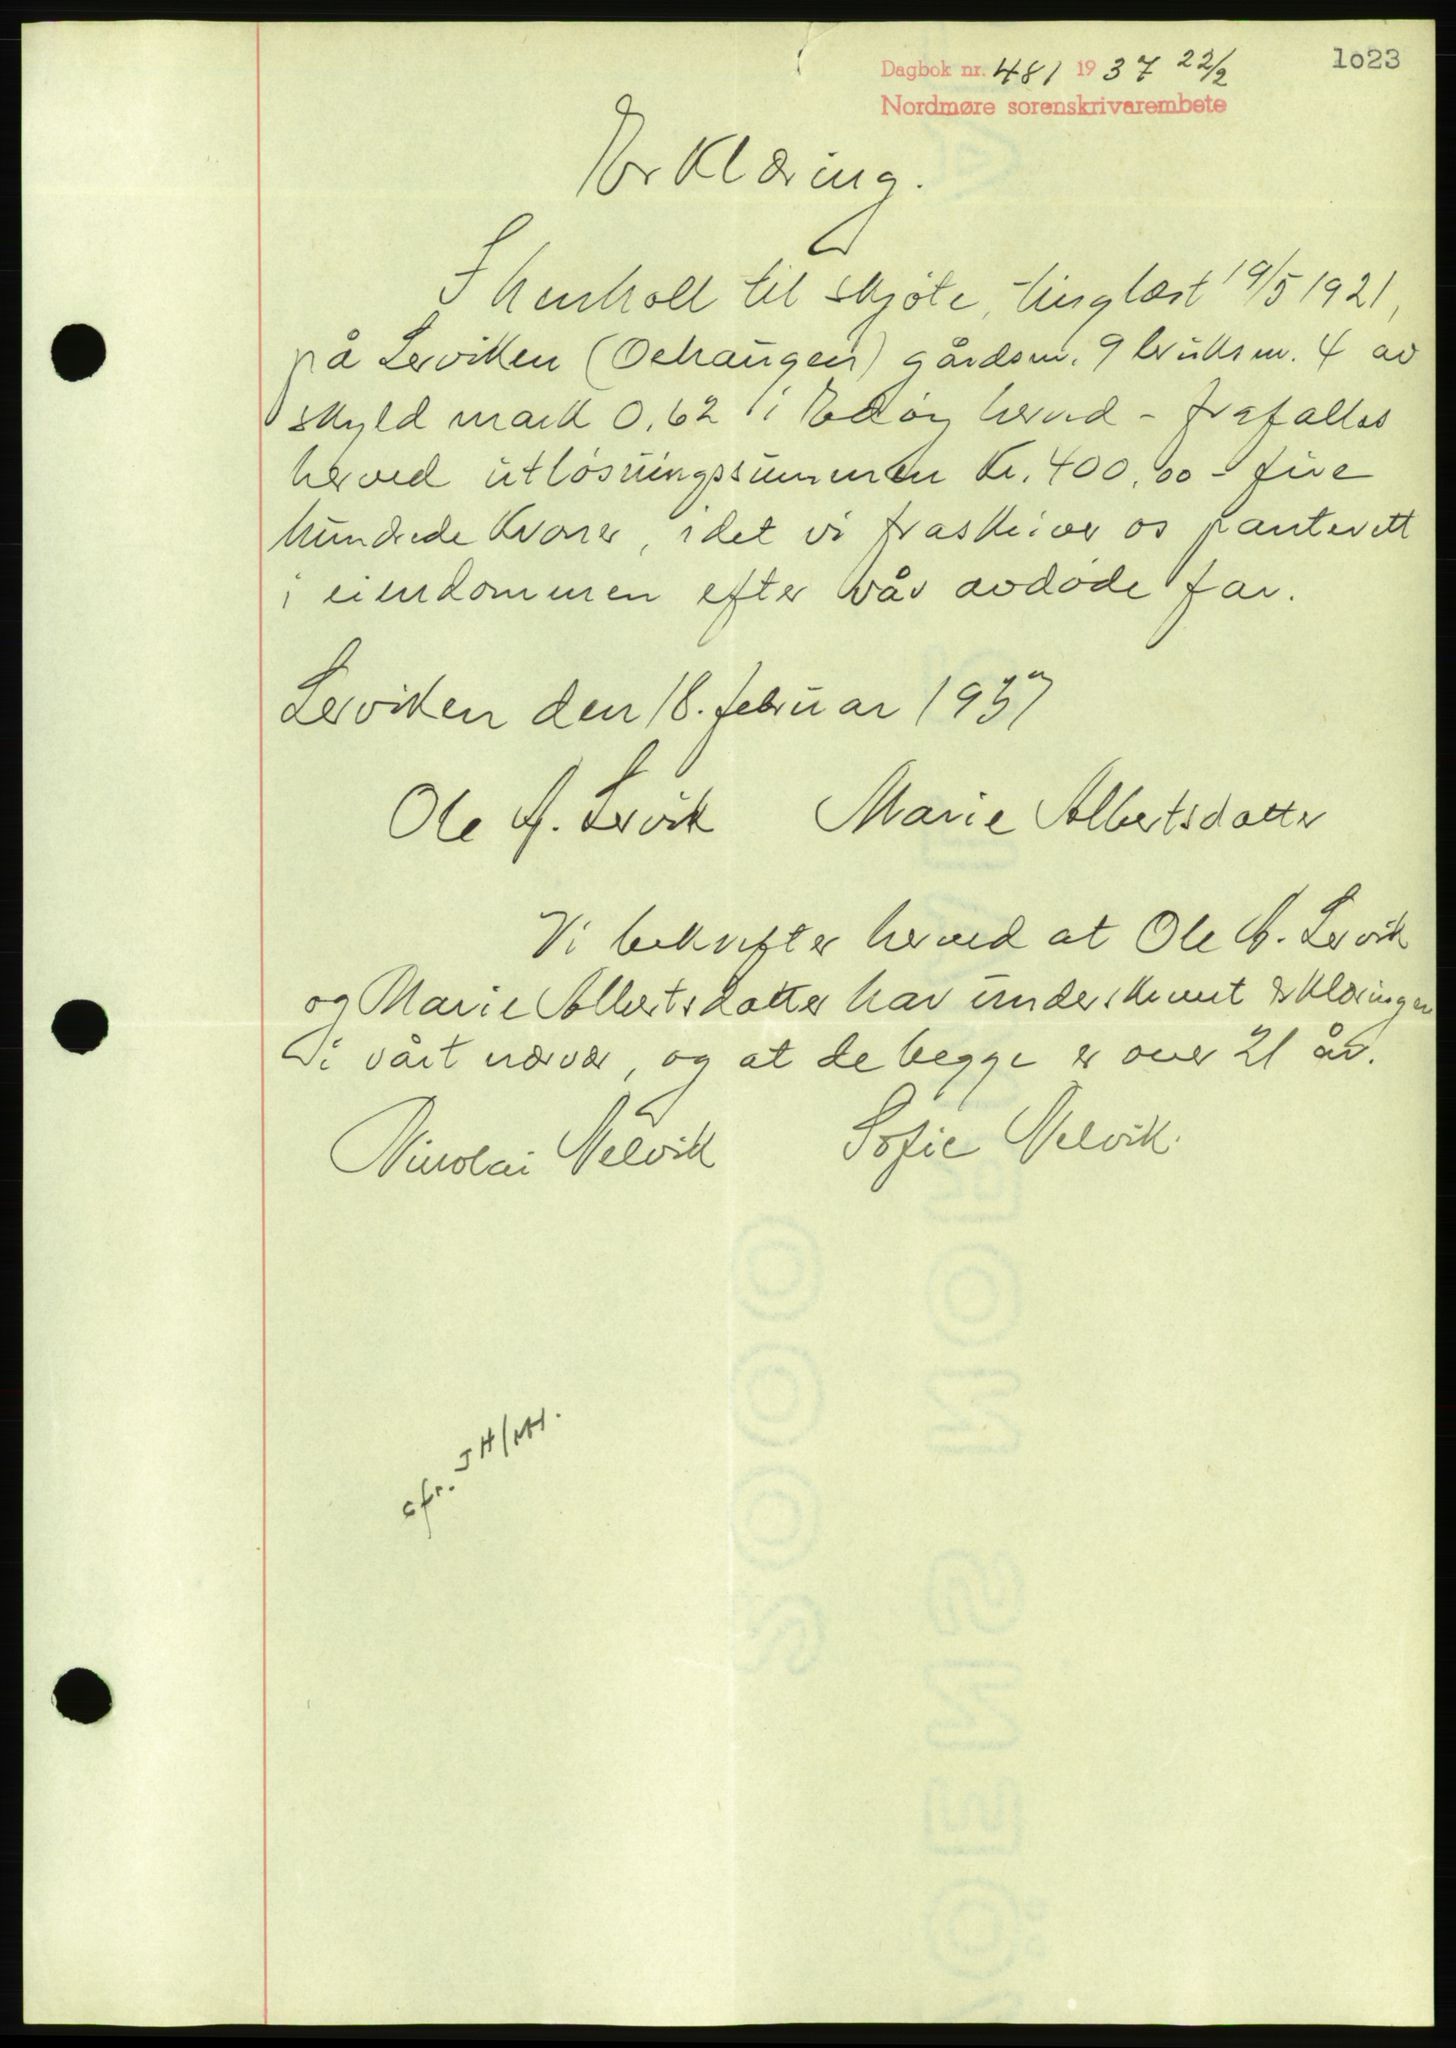 1023
Dagbok nr. 481 1937 22/2
Nordmøre sorenskrivarembete
Erklæring.
I henhold til skjøte, tinglæst 19/5 1921,
på Lerviken (Oehaugen) gårdsnr. 9 bruksnr. 4 av
skyld mark 0,62 i Edøy herred - frafalles
herved utløsningssummen Kr. 400,00 - fire
hundrede kroner, idet vi fraskriver os panterett
i eiendommen efter vår avdøde far.
Lerviken den 18. februar 1937
Ole A. Lervik Marie Albertsdatter
Vi bekrefter herved at Ole A. Lervik
og Marie Albertsdatter har underskrevet erklæringen
i vårt nærvær, og at de begge er over 21 år.
Nikolai Melvik Sofie Melvik.
cfr. JH/MH.